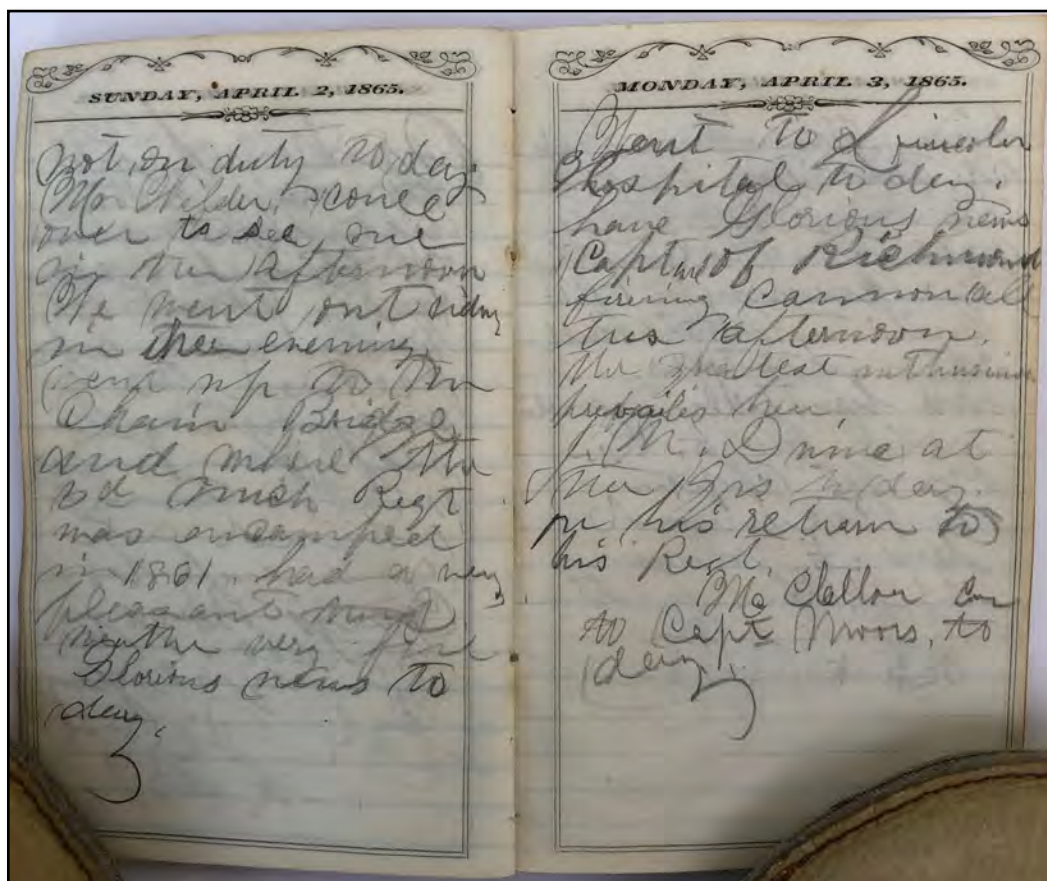 SUNDAY, APRIL 2, 1865.
not on duty to day.
Mr Childer
over to see me
in the afternoon
We went out riding
in the evening.
went up to the
Chain Bridge
and where the
3d Mich Regt
was encamped
in 1861. had a very
pleasant
weather very fine
Glorious news to
day.
MONDAY, APRIL 3, 1865.
Went to Lincoln
Hospital to day.
have Glorious news
Capture of Richmond
fireing Cannon all
this afternoon.
the greatest enthusiasm
prevailes here.
at
the to day.
his return to
his Regt.
Mc
to Capt Moors, to
day.